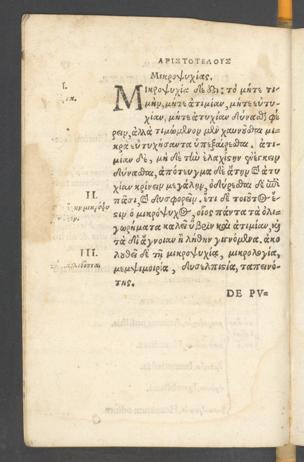 ΑΡΙΣΤΟΤΕΛΟΥΣ
Μικροψυχίας.
Μικροψυχία δέ ἐςι· τὸ μήτε τι-
μὴν, μήτε ἀτιμίαν, μήτε εὐτυ-
χίαν, μήτε ἀτυχίαν δύναϑαι φέ
ρειν, ἀλλὰ τιμώμϟνον μὲν χαυνοῦϑαι
μικρὰ εὐτυχήσαντα ὑπεξαίρεϑαι. ἀτι-
μίαν δὲ, μὴ δὲ τὼ ἐλαχίςην ἐνέγκειν
δύναϑαι, ἀπότευγμα δὲ ἀτυχίαν
κρίνειν μεγάλην, ὀδύρεϑαι δὲ ἐπὶ
πᾶσι, καὶ δυσφορεῖν. ἔτι δὲ τοιοῦτος
ἐςιν ὁ μικρόψυχος, οἷος πάντα τὰ ὀλι-
γωρήματα καλεῖν ὕβριν καὶ ἀτιμίαν, καὶ
τὰ δὲ ἄγνοιαν ἢ λήθην γενόμϟνα. ἀκο
λουθεῖ δὲ τῇ μικροψυχίᾳ, μικρολογία,
μεμψιμοιρία, δυσελπιςία, ταπεινό-
της.
DE PV=
I.
II.
III.